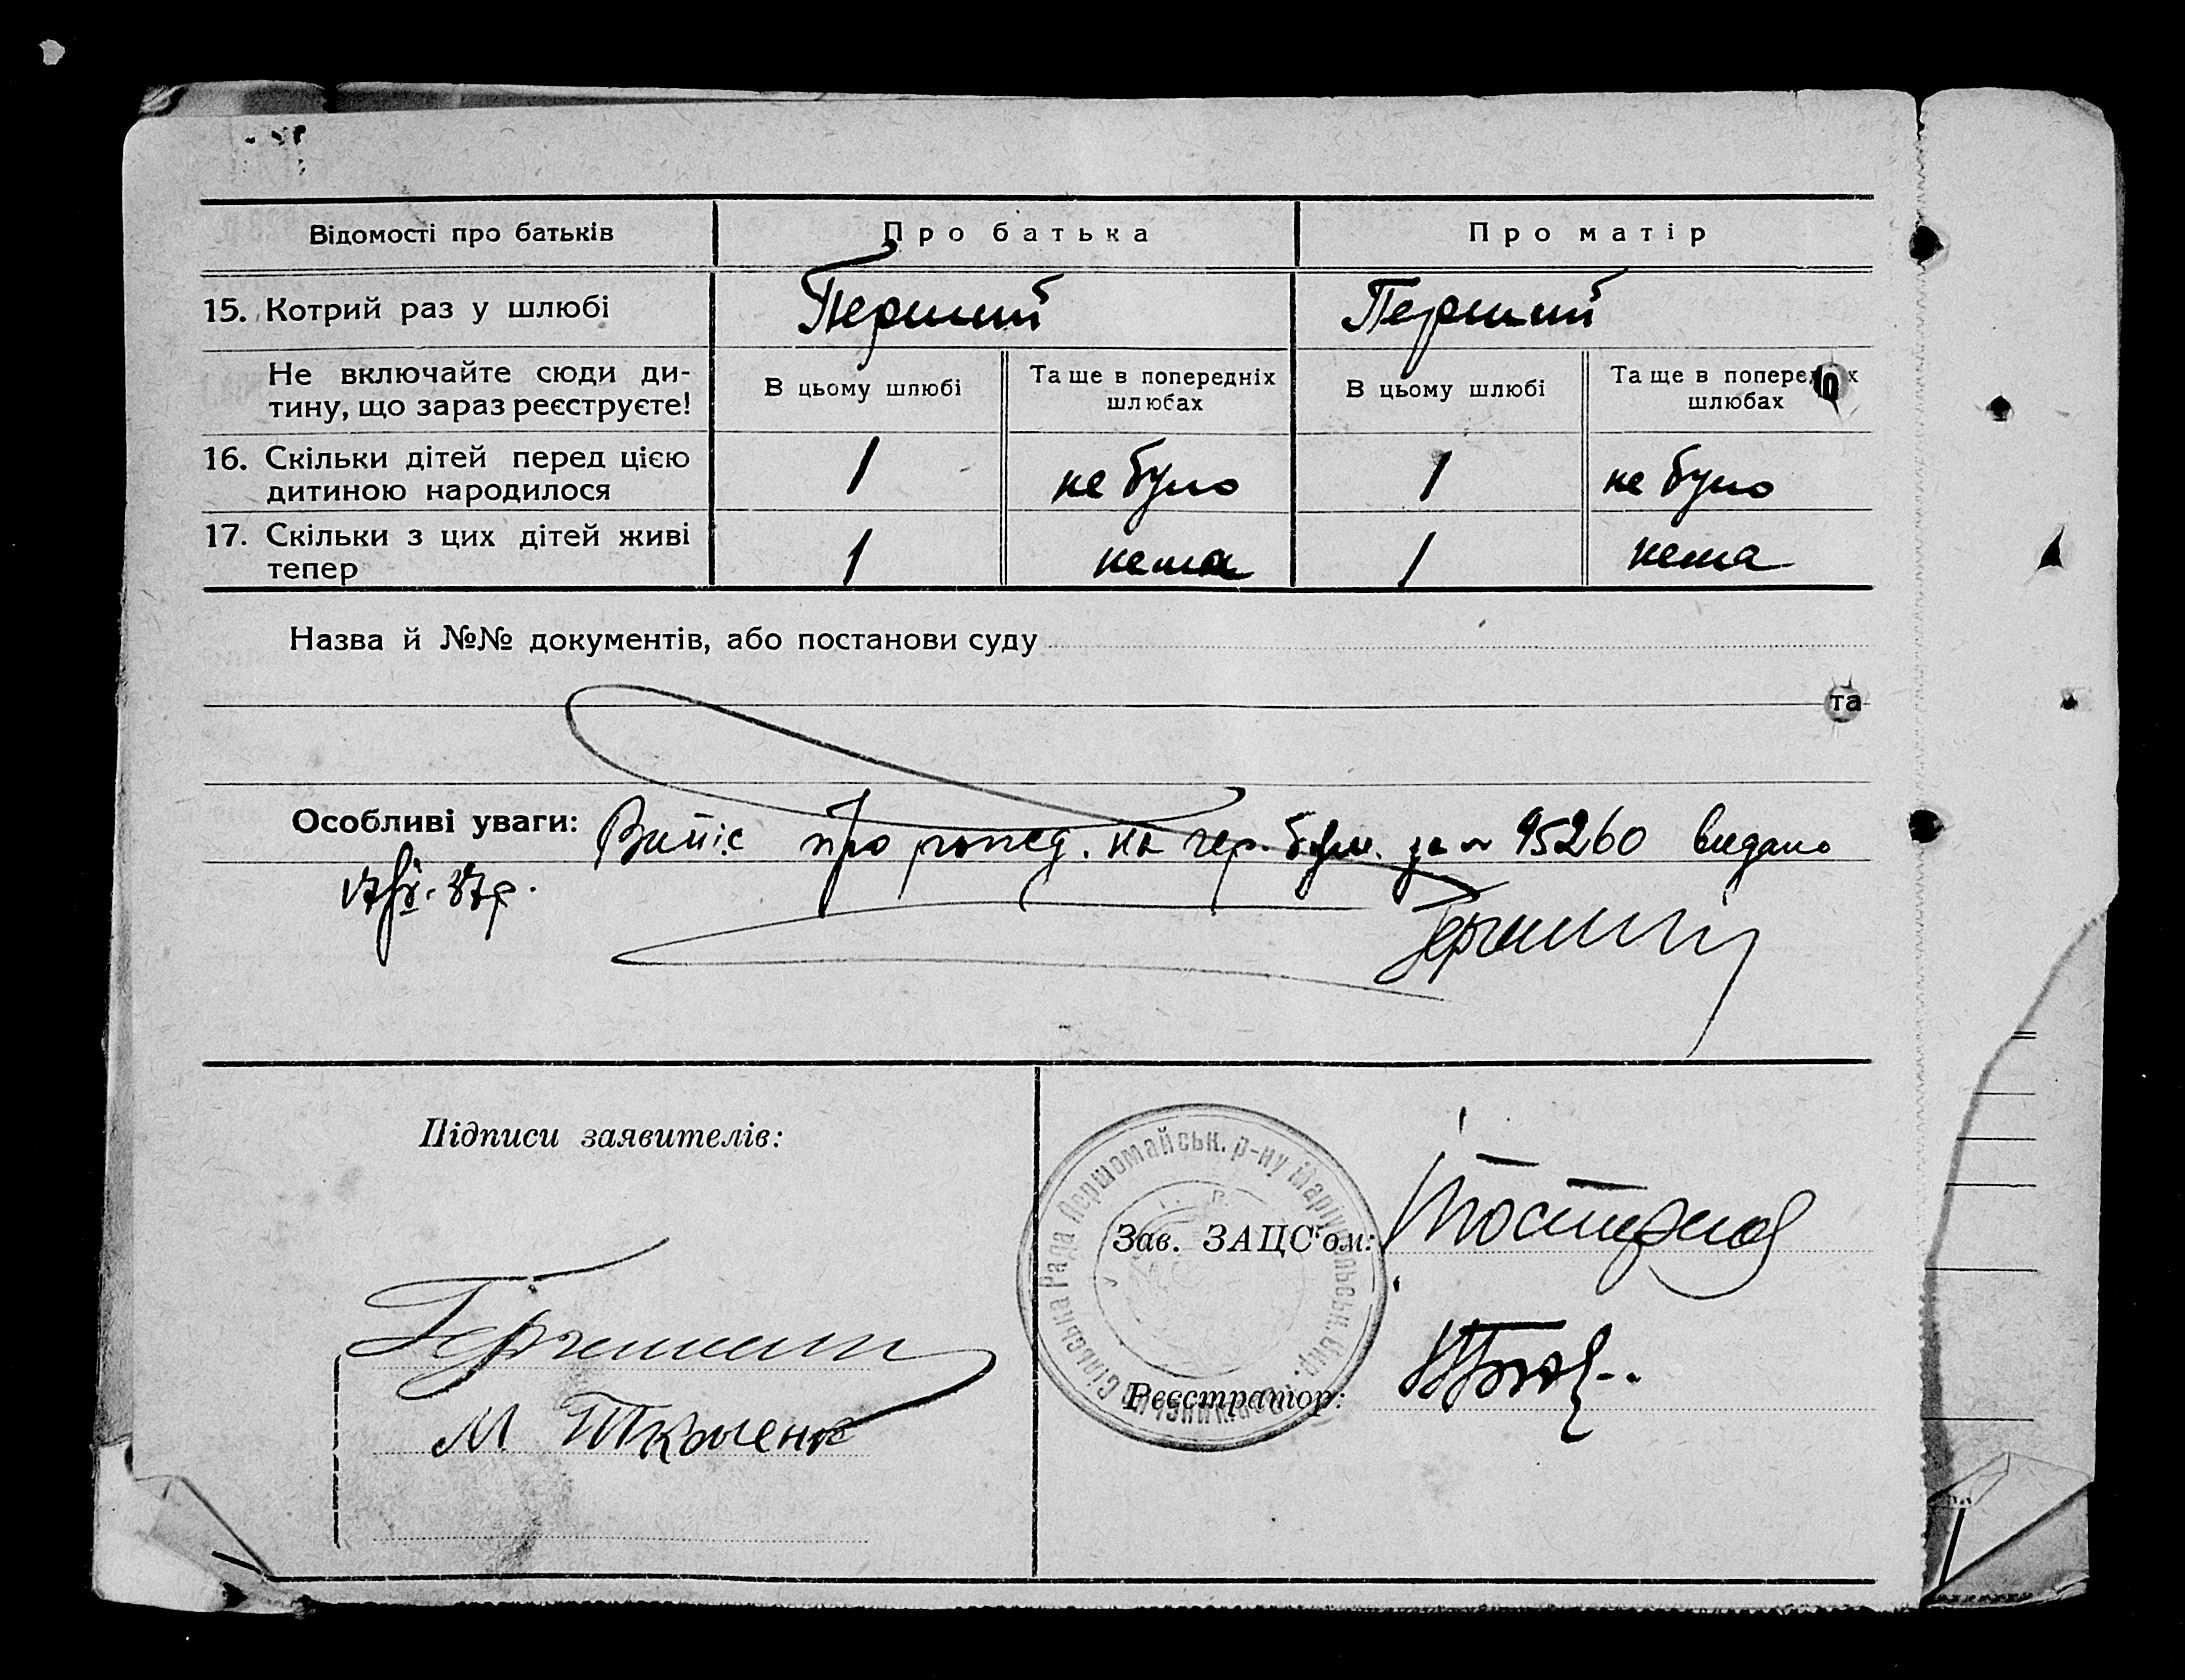 Відомості про батьків
Про батька
Про матір
15. Котрий раз у шлюбі
Перший
Перший
Не включайте сюди ди-
тину, що зараз реєструєте!
В цьому шлюбі
Та ще в попередніх
шлюбах
В цьому шлюбі
Та ще в попередніх
шлюбах
16. Скільки дітей перед цією
дитиною народилося
1
не було
1
не було
17. Скільки з цих дітей живі
тепер
1
нема
1
нема
Назва й №№ документів, або постанови суду
та
Особливі уваги: Випіс про рожед. на гер. бум. за № 95260 видано
37р.
Підписи заявителів:
М Ткаченко
Сільська Рада Першомайськ. р-ну Маріупільськ. Окр.
Зав. ЗАЦС'ом:
Реєстратор: